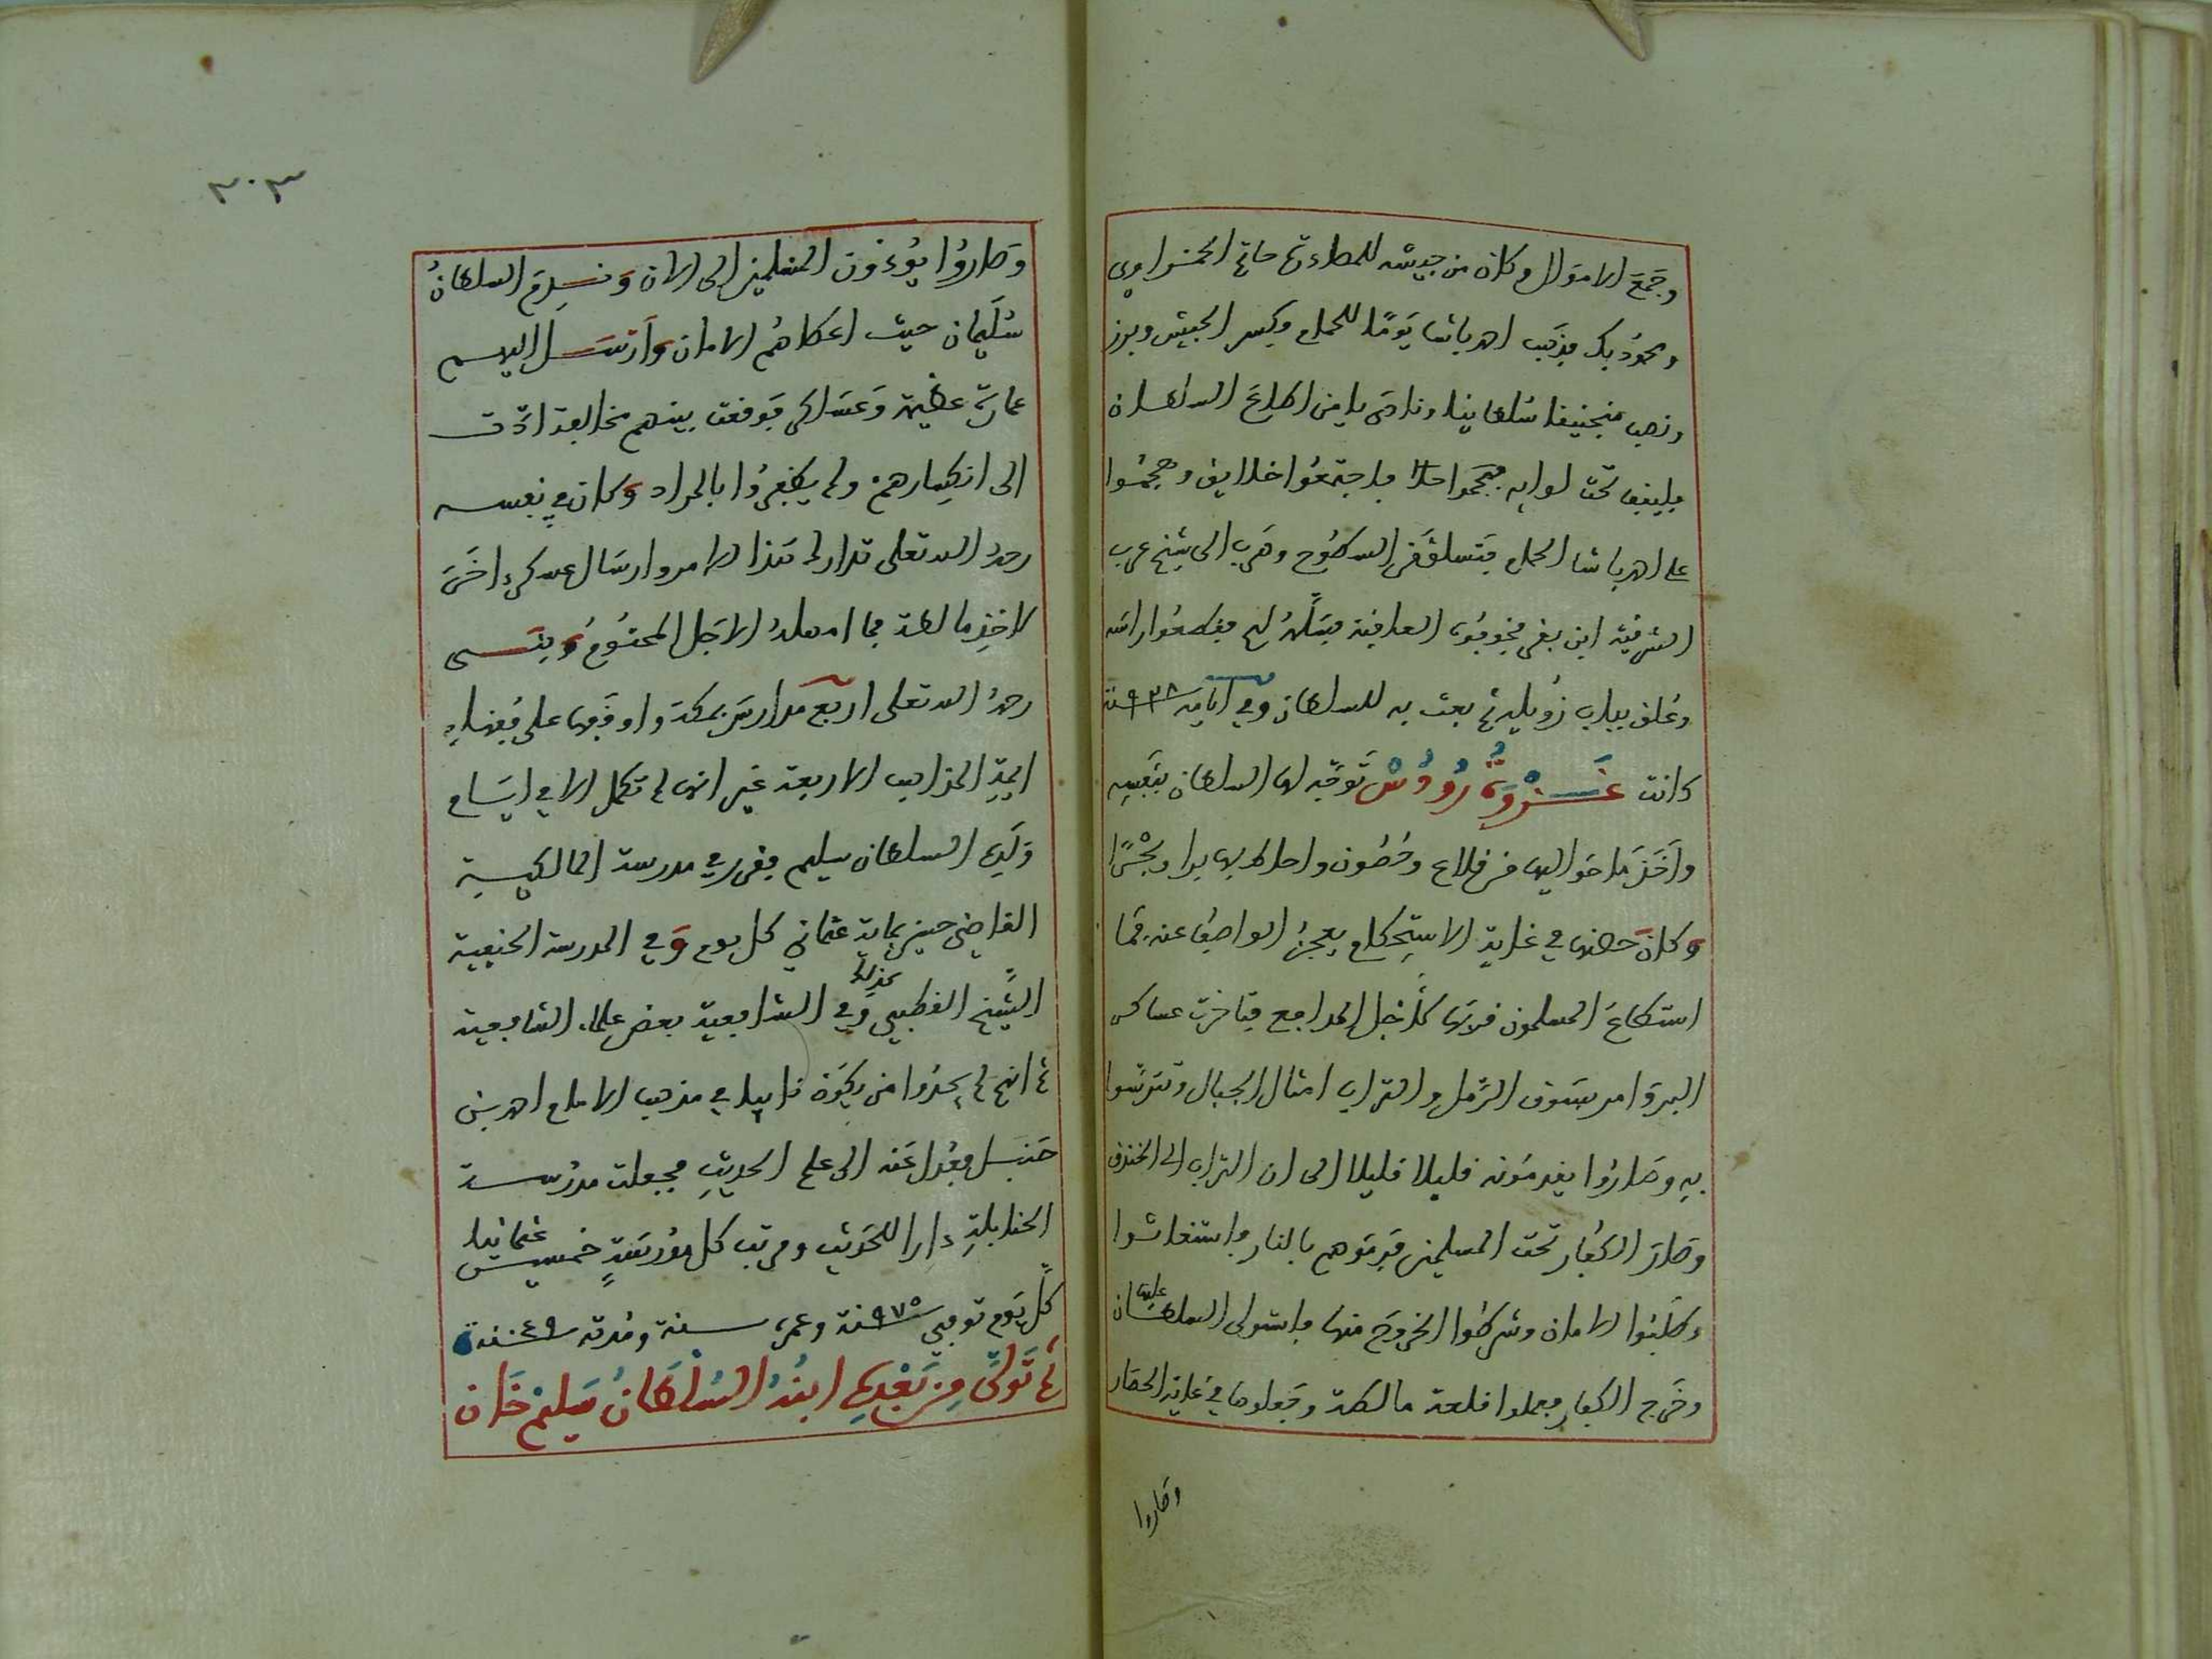 وجمع الاموال وكان من جيشه للعطاءة حاتم الحمزاوي
ومحمود بك فذهب احمد باشا يوما للحمام وكسر الجيش وبرز
ونصب سلطانيا ونادى يا من اطاع السلطان
فليقف تحت لوايه فاجتمعوا خلايق وهجموا
على احمد باشا الحمام فتسلق من السطوح وهرب الى شيخ عرب
الشرقية ابن بقر العاقبة فسلمه لهم فقطعوا راسه
وعلق بباب زويلة ثم بعث به للسلطان وفي ايامه سنة ٩٢٨
كانت غزوة رودس توجه لها السلطان بنفسه
واخذ ما حواليها من قلاع وحصون واحاط بها برا وبحرا
وكان حصنها في غاية الاستحكام يعجز الواصف عنه فما
استطاع المسلمون قربها لاجل المدافع فتاخرت عساكر
البر وامر بسوق الرمل والتراب امثال الجبال وتترسوا
به وصاروا يقدمونه قليلا قليلا الى ان التراب الى الخندق
وصار الكفار تحت المسلمين فرموهم بالنار واستغاثوا
وطلبوا الامان وشرطوا الخروج منها واستولى السلطان عليها
وخرج الكفار فعملوا قلعة مالطة وجعلوها في غاية الحصار
وصاروا
٣٠٣
وصاروا يوءذون المسلمين الى الان وندم السلطان
سليمان حيث اعطاهم الامان وارسل اليهم
عمارة عظيمة وعساكر فوقعت بينهم مخالفة ادت
الى انكسارهم ولم يظفروا بالمراد وكان في نفسه
رحمه الله تعلى تدارك هذا الامر وارسال عسكر اخر
لاخذ مالطة فما امهله الاجل المحتوم وبنى
رحمه الله تعلى اربع مدارس بمكة واوقفها على فقهاء
ايمة المذاهب الاربعة غير انها لم تكمل الا في ايام
ولده السلطان سليم فقرر في مدرسة المالكية
القاضي حسين بماية عثماني كل يوم وفي المدرسة الحنفية
الشيخ القطبي كذلك وفي الشافعية بعض علماء الشافعية
ثم انهم لم يجدوا من يكون نايبا في مذهب الامام احمد بن
حنبل فعدل عنه الى علم الحديث فجعلت مدرسة
الحنابلة دارا للحديث ومرتب كل مدرسة خمسين عثمانيا
كل يوم توفي سنة ٩٧٥ وعمره سنة ومدته سنة ٤٩
ثم تولى من بعده ابنه السلطان سليم خان